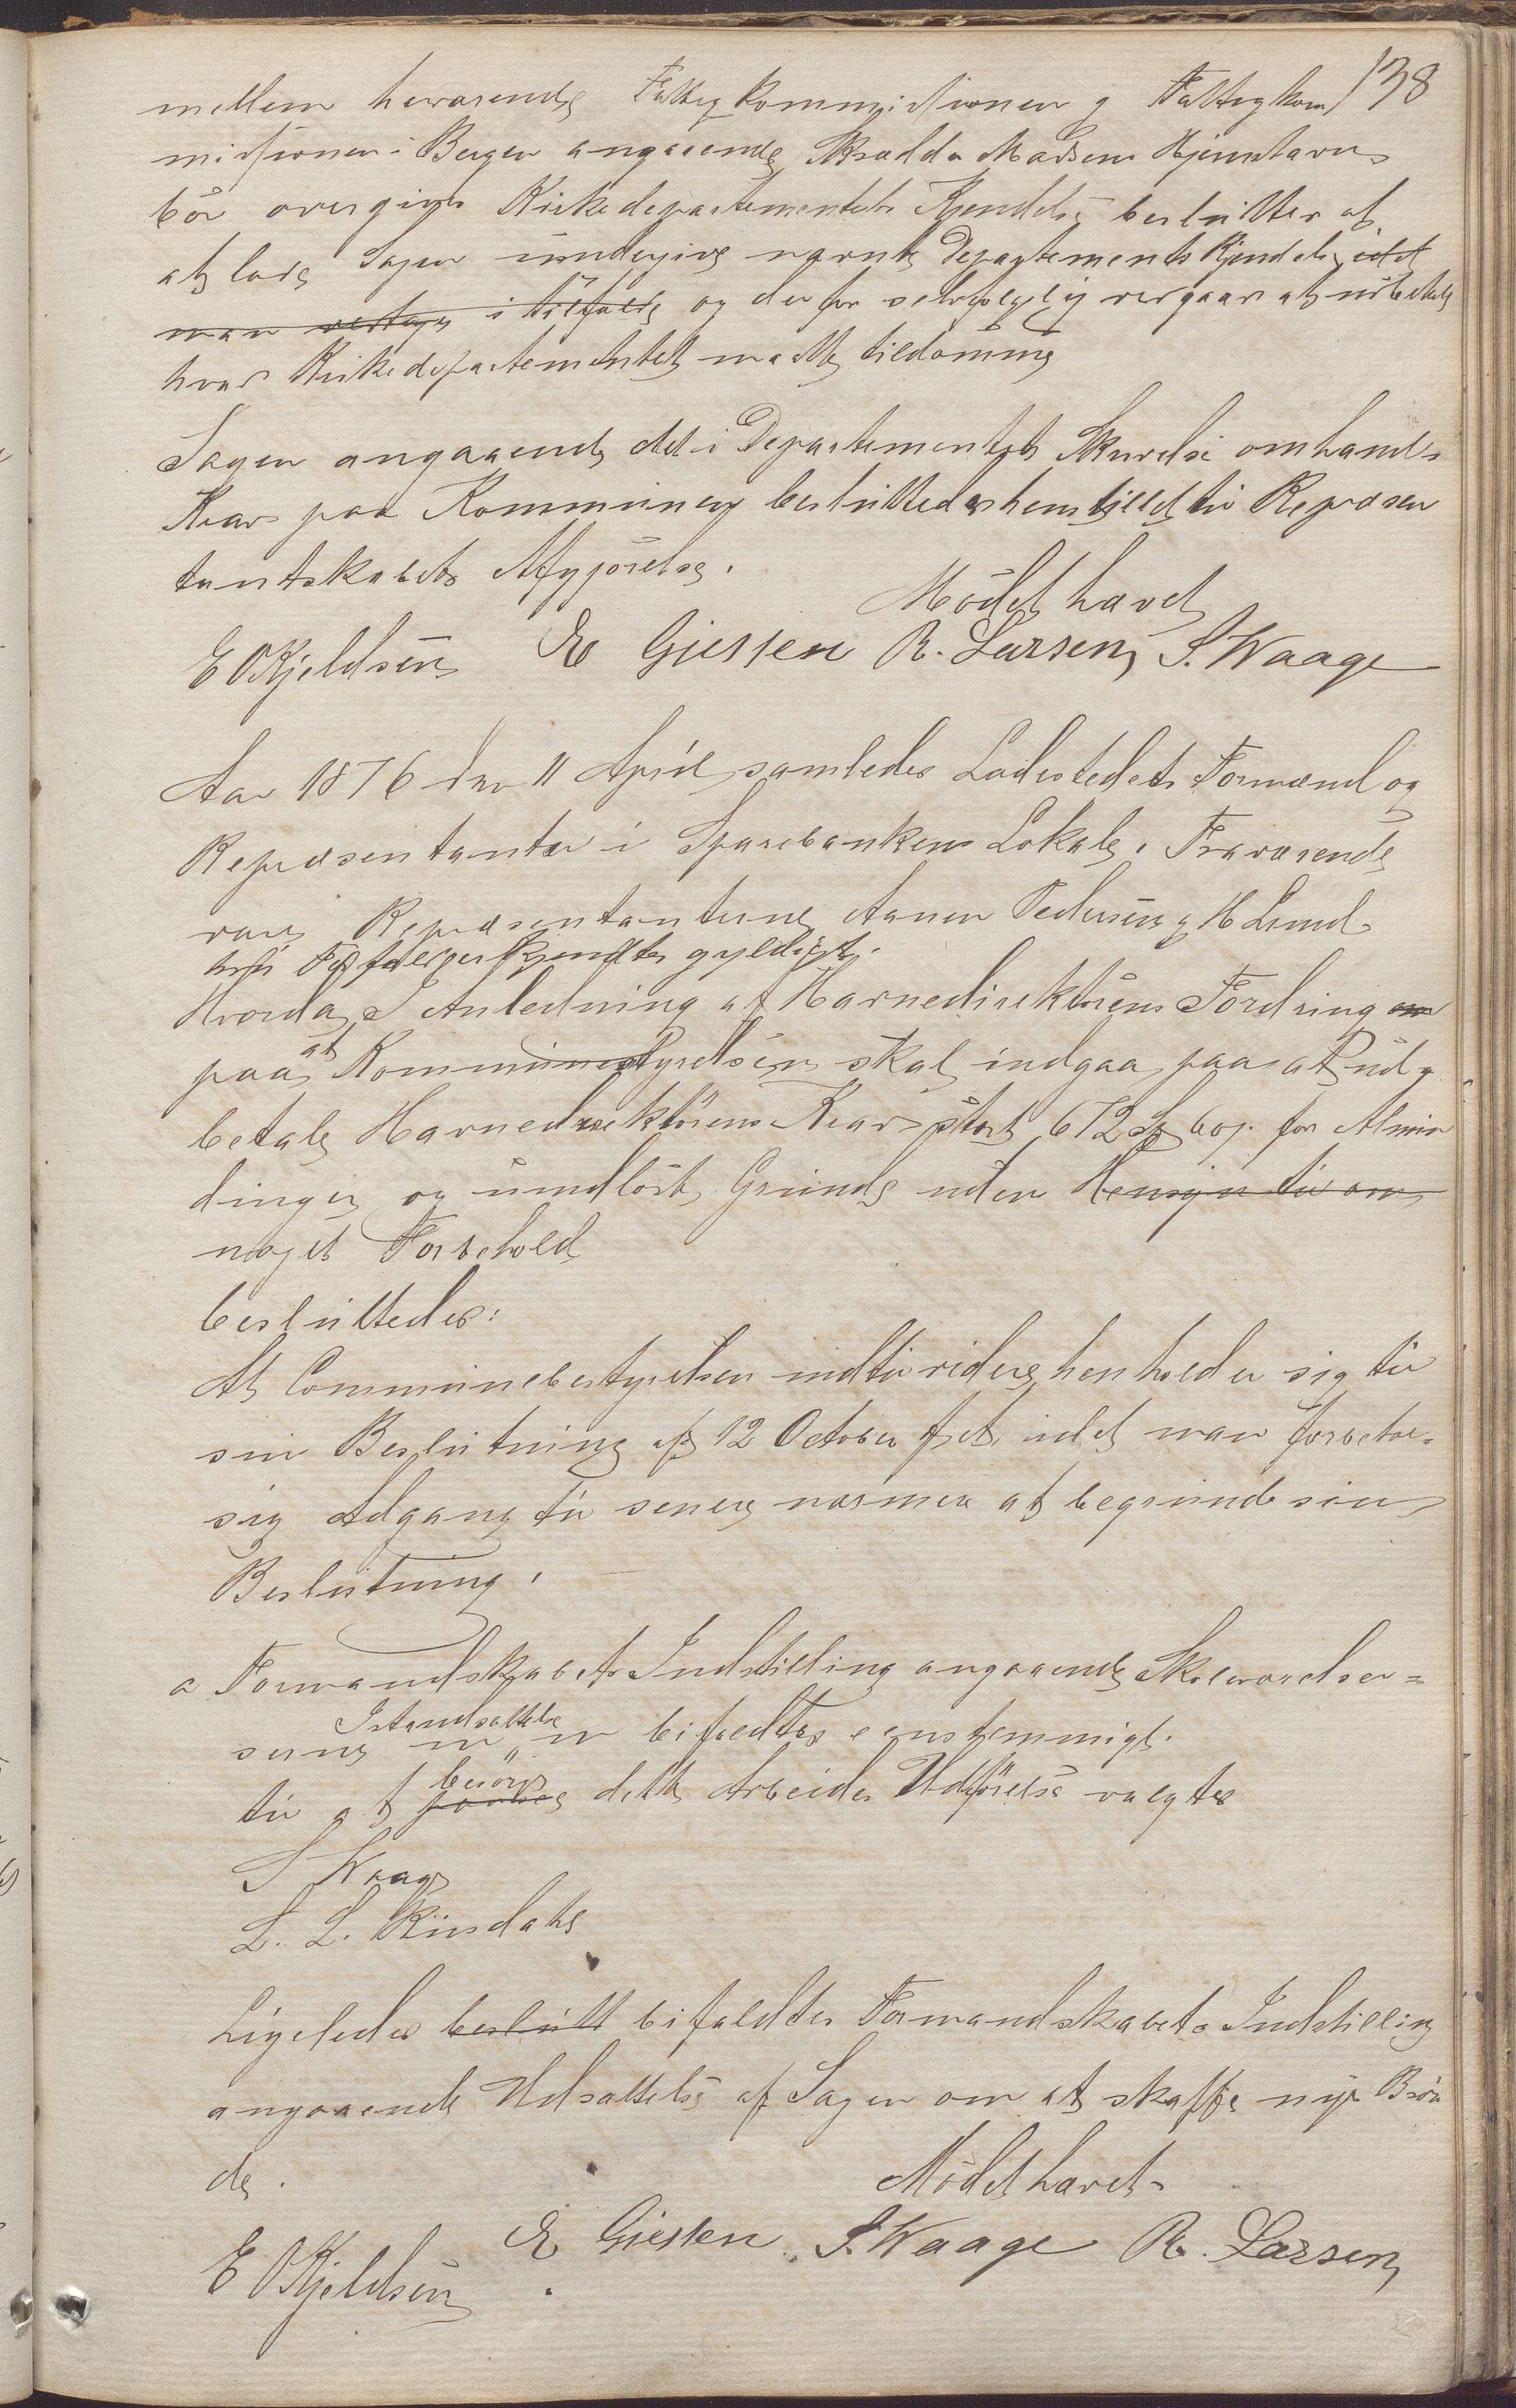 138
mellem herværende Fattigkommissionen og Fattigkom
missionen i Bergen angaaende Skrædder Madsens Hjemstavns
bör overgives Kirkedepartementets Kjendelse beslutter at
at lade Sagen undergive nævnte Departements Kjendelse, idet
man vedtager i Tilfælde og derfor selvfølgelig vergaar at udbetale
hvad Kirkedepartementet maatte tildömme
Sagen angaaende det i Departementets Skrivelse omhand-
Krav paa Kommunen besluttedes henstillet til Repræsen
tantskabets Afgjörelse.
Mödet hævet
E O Kjeldsen E Giessen R. Larsen, S. Waage
Aar 1876 den 11 April samledes Ladestedets Formænd og
Repræsentanter i Sparebankens Lokale. Fraværende
vare Repræsentanterne Aanen Pedersen og H Lund
hvis Forfald erkjendtes gyldigt.
Hvorda I Anledning af Havnedirektörens Fordring om
paa at Kommunestyrelsen skal indgaa paa at ud-
betale Havnedirektörens Krav stort 672 Sp 60 s. for Almin
dinger og uindlöst Grund uden Hensyn til om
noget Forbehold
besluttedes:
At Communebestyrelsen indtil videre henholder sig til
sin Beslutning af 12 October f.A. idet man forbehol-
sig Adgang til senere nærmere at begrunde sin
Beslutning.
a Formandskabets Indstilling angaaende Skoleværelser=
sernes Istandsættelse bifaldtes eenstemmigt.
til at besörge dette Arbeides Udförelse valgtes
S Waage
L. L. Riisdahl
Ligeledes beslutt bifaldtes Formandskabets Indstilling
angaaende Udsættelse af Sagen om at skaffe nye Brön
de.
Mödet hævet.
E O Kjeldsen E Giessen S. Waage R. Larsen